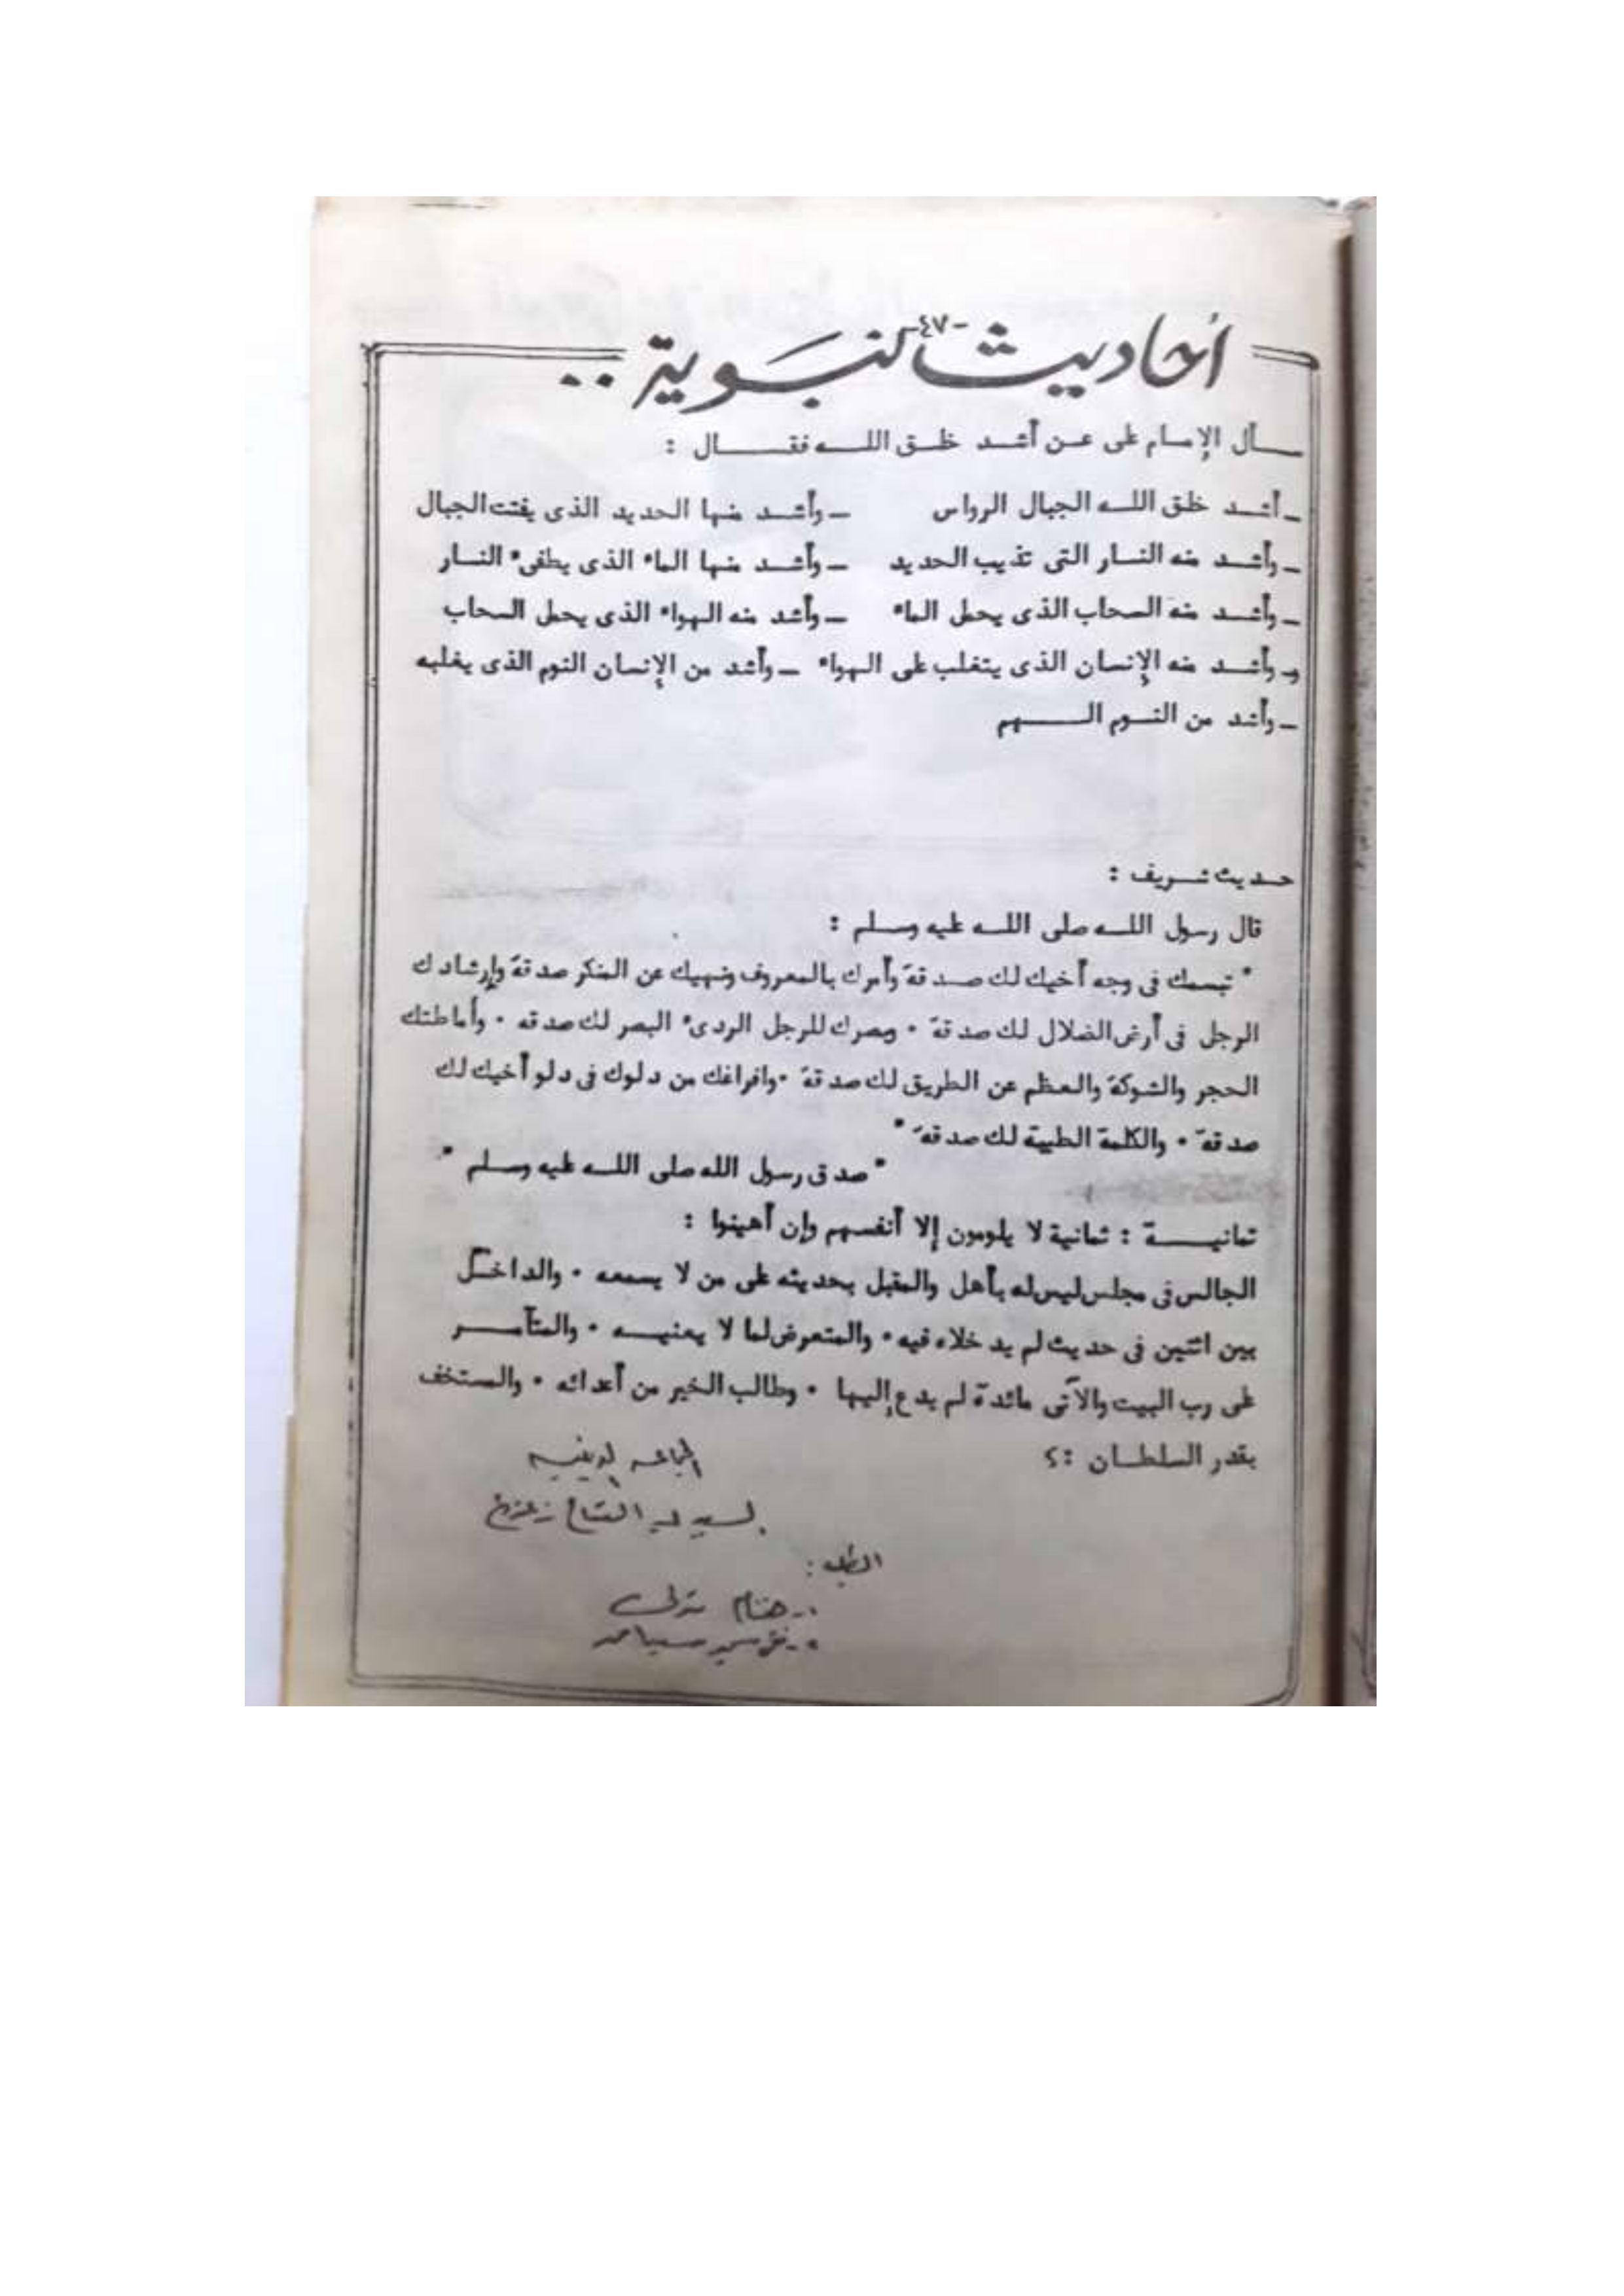 -٤٧-
أحاديث نبوية ..
سأل الإمام على عن أشد خلق الله فقال :
ـ أشد خلق الله الجبال الرواس ـ وأشد منها الحديد الذى يفتت الجبال
ـ وأشد منه النار التى تذيب الحديد ـ وأشد منها الماء الذى يطفىء النار
ـ وأشد منه السحاب الذى يحمل الماء ـ وأشد منه الهواء الذى يحمل السحاب
و وأشد منه الإنسان الذى يتغلب على الهواء ـ وأشد من الإنسان النوم الذى يغلبه
ـ وأشد من النوم الهم
حديث شريف :
قال رسول الله صلى الله عليه وسلم :
" تبسمك فى وجه أخيك لك صدقة وأمرك بالمعروف ونهيك عن المنكر صدقة وإرشادك
الرجل فى أرض الضلال لك صدقة . وبصرك للرجل الردىء البصر لك صدقه . وأماطتك
الحجر والشوكة والعظم عن الطريق لك صدقة . وافراغك من دلوك فى دلو أخيك لك
صدقة . والكلمة الطيبة لك صدقة "
" صدق رسول الله صلى الله عليه وسلم "
ثمانيــة : ثمانية لا يلومون إلا أنفسهم وإن أهينوا :
الجالس فى مجلس ليس له بأهل والمقبل بحديثه على من لا يسمعه . والداخل
بين اثنين فى حديث لم يدخلاه فيه . والمتعرض لما لا يعنيه . والمتآمر
على رب البيت والآتى مائدة لم يدع إليها . وطالب الخير من أعدائه . والمستخف
بقدر السلطان :؟
الجماعه الدينيه
السيد عبد الفتاح
الطلبه :
١- هشام
٢-